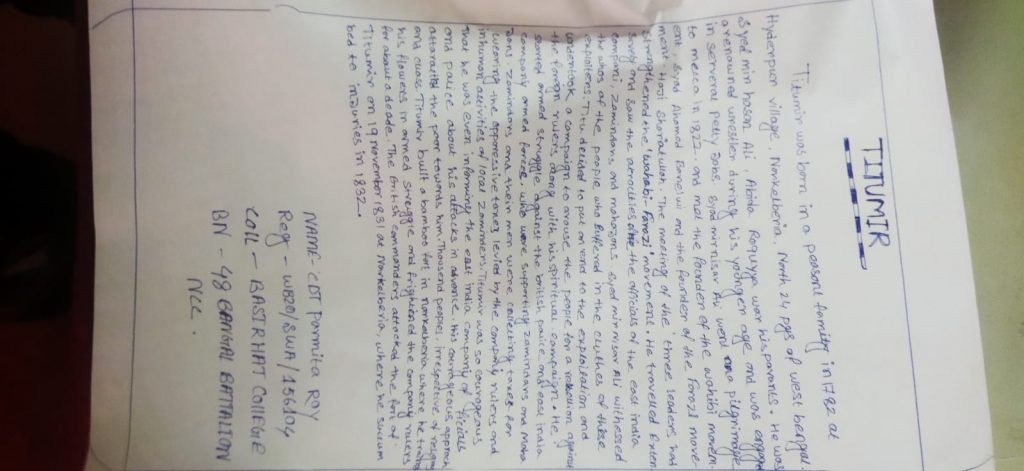 TITUMIR
Titumir was born in a peasant family in 1782 at
Hyderpur village, Narkelberia, North 24 pgs of west bengal
Syed mir hasan Ali, Abida Roquyya war his parants. He was
a renowned wrestler during his younger age and was engage
in serveral petty Jobs. Syed mirnisar Ali went on a pilgrimage
to mecca in 1822. and met the leader of the wahibi movem
ent Syed Ahamad Barelwi and the founder of the Farazi move-
ment Hazi Shariatullah. The meeting of the three leaders had
strengthened the Wahabi-Farazi movements. He travelled Exten
sively and saw the atrocities of the officials of the east india
company, Zamindars and mahajans Syed mir nisar Ali withessed
the woes of the people who suffered in the cluthes of these
exhoiters. Titu decided to put an end to the exploitation and
undertook a campaign to arouse the people for a rebelion against
the foreign rulers along with his spiritual campaign. He
started armed struggle against the british police and east india
company armed force, who were supporting zamindars and Maha
Jans. Zamindars and their men were collecting taxes for
the oppressive taxes levied by the company rulers and
inhuman activities of local zaminders Titumir was so couragrous
that he was even informing the east india company of officials
and police about his attacks in advance. his corrageous approach
attaracted the poor towards him. Thousand people, irrespetive of
and cuase. Titumir built a bamboo fort in Narkelberia, where he
his flowers in armed struggle and frightened the company rulers
for about a deade. The British commanders attacked the fort of
Titumir on 19 november 1831 at Narkelberia, where he succum
bed to indurties in 1832.
NAME: CDT Parmita ROY
Reg - WB20/SWA/156104
COLL - BASIRHAT COLLEGE
BN - 48 BANGAL BATTALION
NCC.